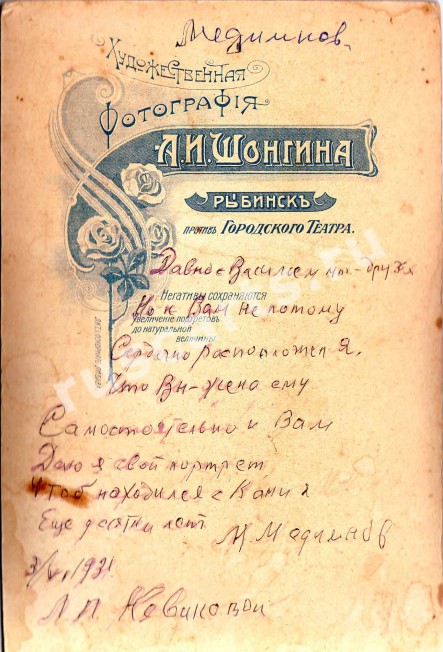 Медимнов.
Художественная
Фотографія
А.И. Шонгина
Рыбинскъ
противъ Городского Театра.
Давно с Василием мы - друзья
Негативы сохраняются
Но к Вам не потому
увеличение портретов
до натуральной
величины
Сердечно расположен я,
Что Вы - жена ему
Самостоятельно к Вам
Даю я свой портрет
Чтоб находился с Вами
Еще десятки лет
М Мадимнов
1931
Л П Новиковой